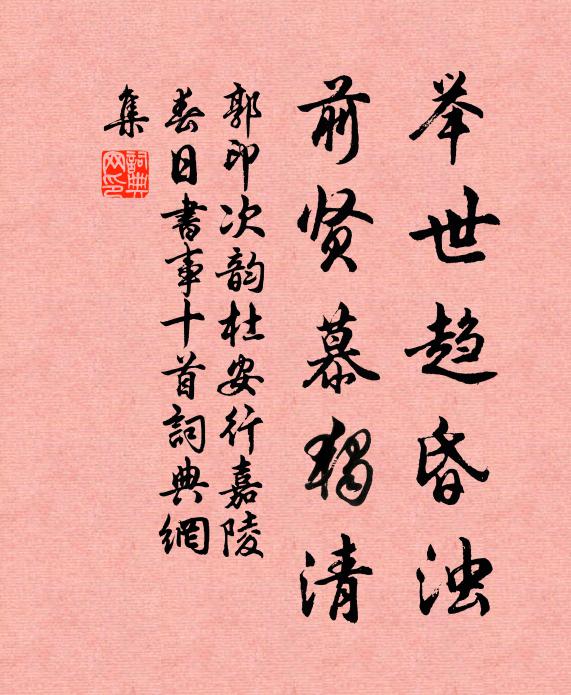 举世趋昏浊
前贤慕独清
郭印次韵杜安行嘉陵
春日書事十首詞典網
集
詞典
网印